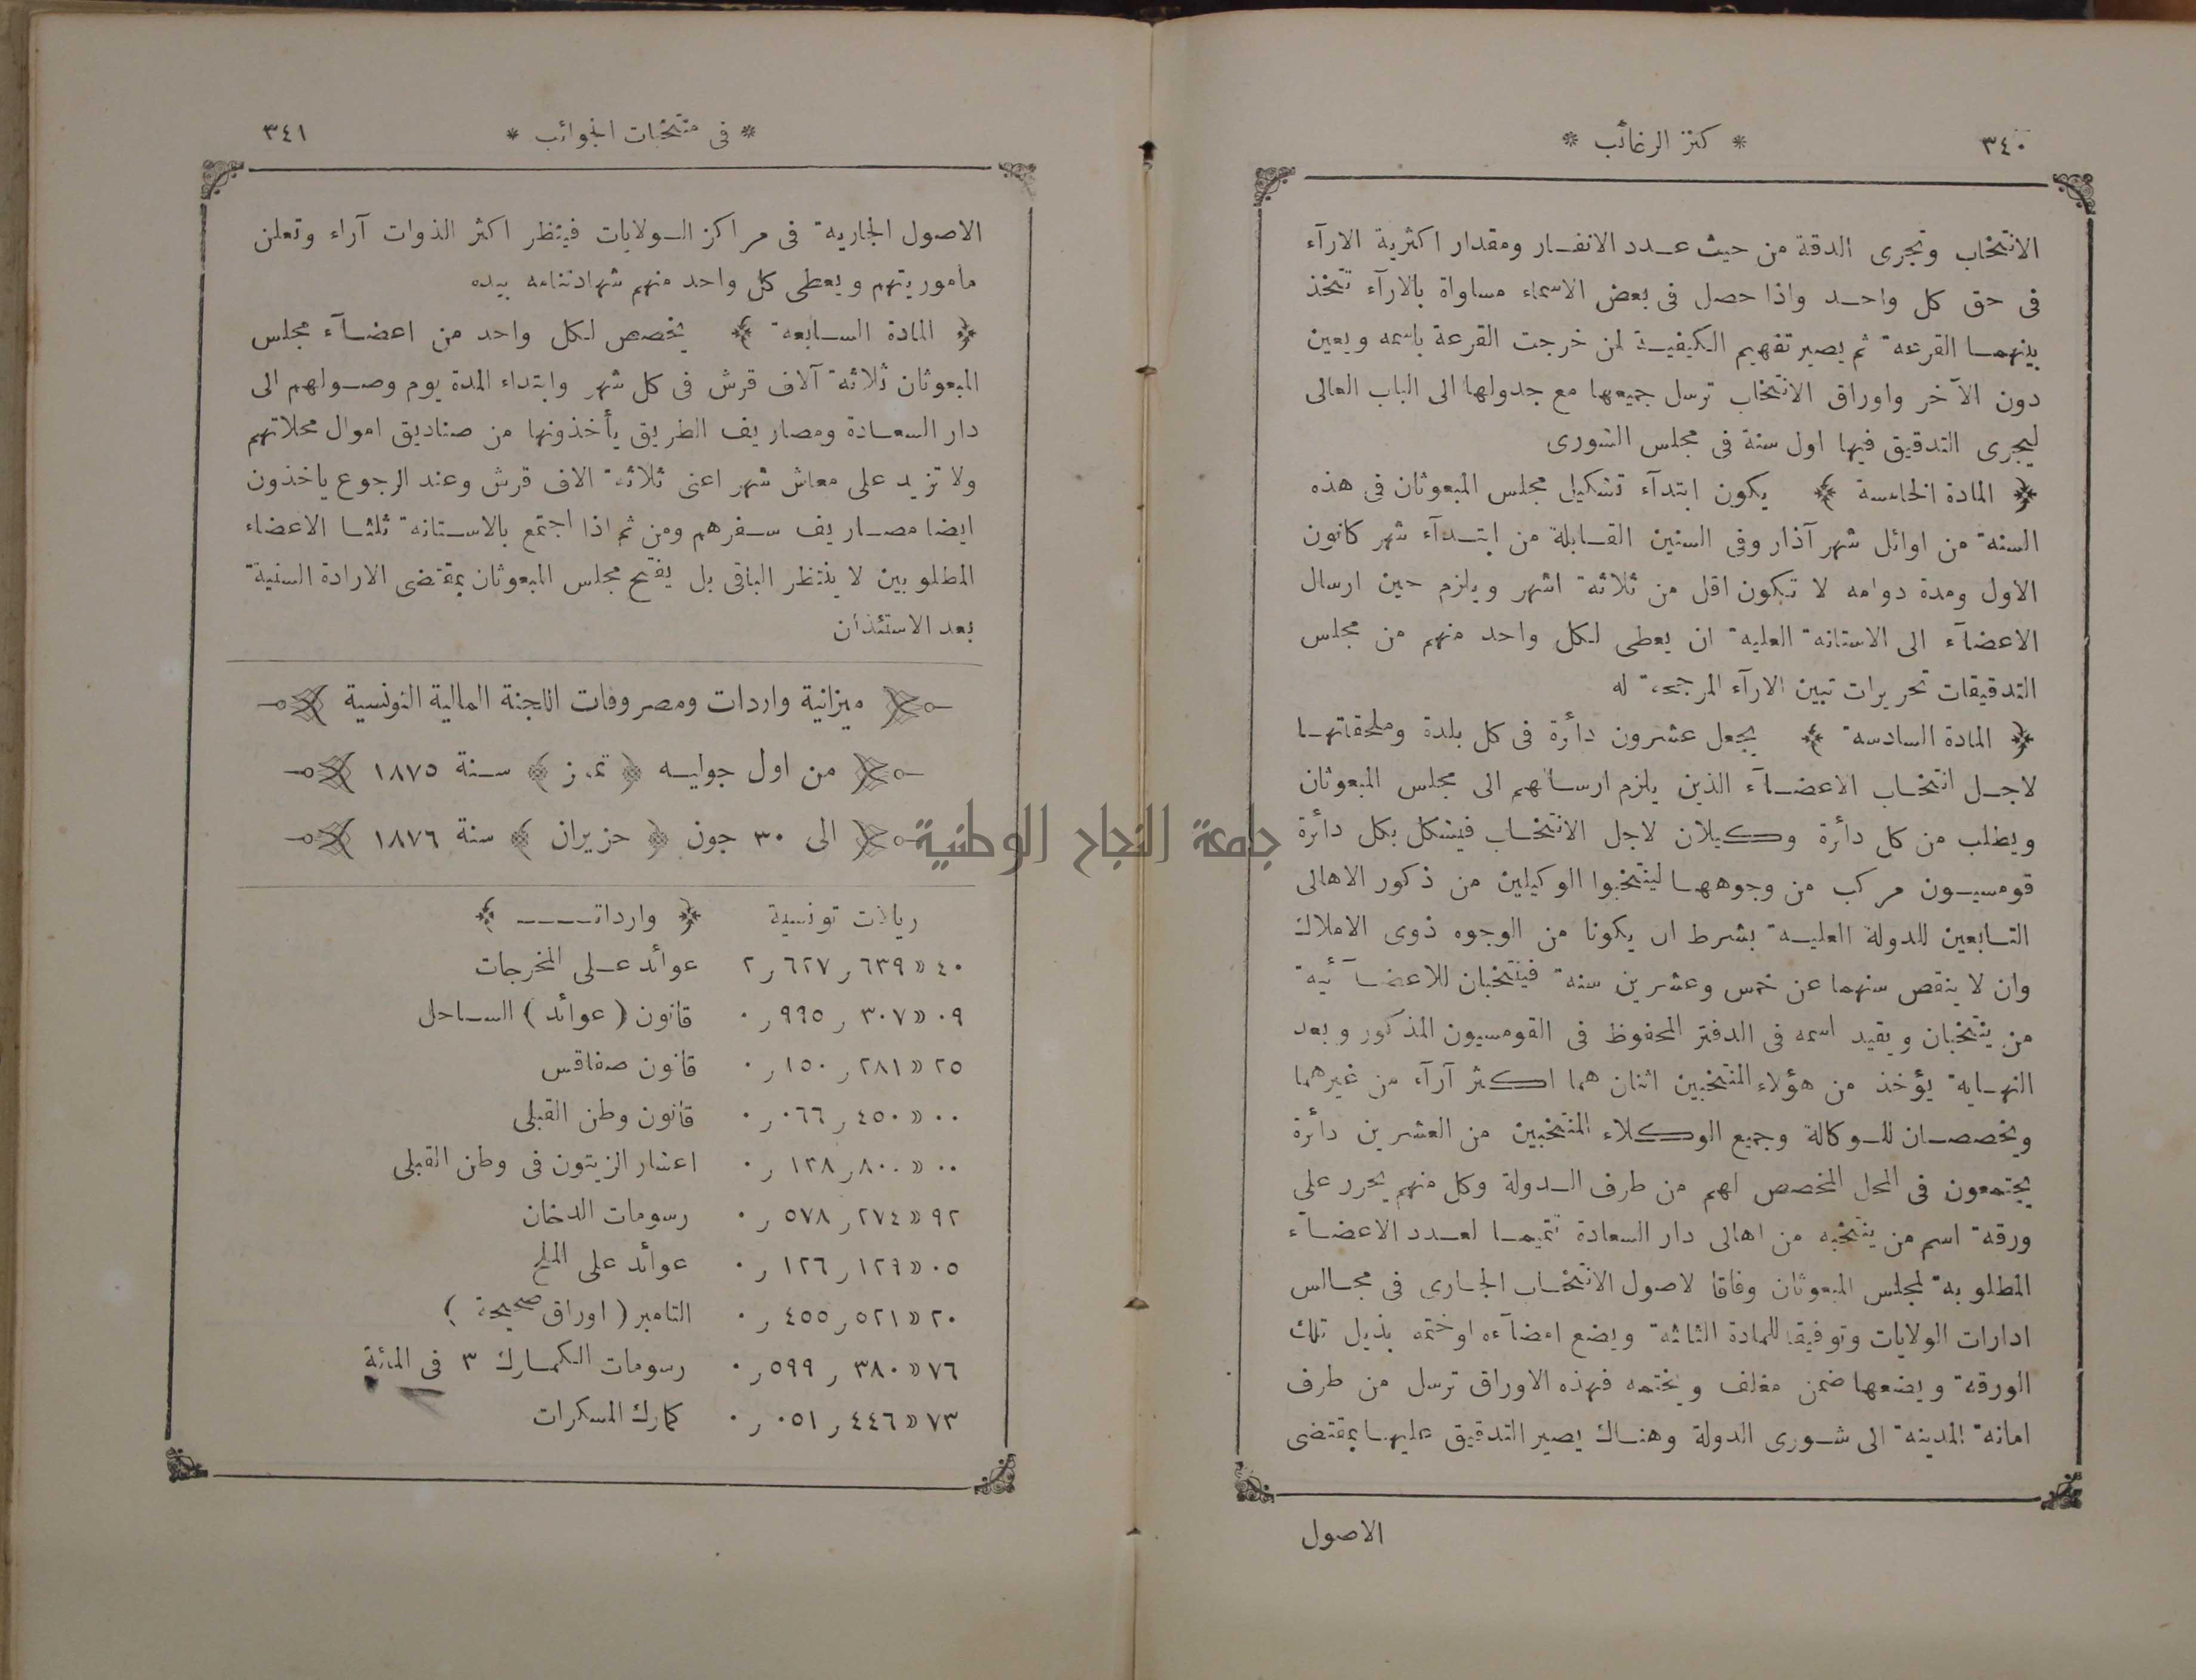 ٣٤٠
* كنز الرغائب *
الانتخاب وتجرى الدقة من حيث عـدد الانفـار ومقدار اكثرية الارآء
فى حق كل واحـد واذا حصل فى بعض الاسماء مساواة بالارآء تتخذ
بينهمـا القرعة ثم يصير تفهيم الكيفيـة لمن خرجت القرعة باسمه ويعين
دون الآخر واوراق الانتخاب ترسل جميعها مع جدولها الى الباب العالى
ليجرى التدقيق فيها اول سنة فى مجلس الشورى
﴿ المادة الخامسة ﴾ يكون ابتدآء تشكيل مجلس المبعوثان فى هذه
السنة من اوائل شهر آذار وفى السنين القـابلة من ابتـدآء شهر كانون
الاول ومدة دوامه لا تكون اقل من ثلاثة اشهر ويلزم حين ارسال
الاعضآء الى الاستانة العلية ان يعطى لكل واحد منهم من مجلس
التدقيقات تحريرات تبين الارآء المرجحة له
﴿ المادة السادسة ﴾ يجعل عشرون دائرة فى كل بلدة وملحقاتهـا
لاجـل انتخـاب الاعضـآء الذين يلزم ارسـالهم الى مجلس المبعوثان
ويطلب من كل دائرة وكيلان لاجل الانتخـاب فيتشكل بكل دائرة
قومسيـون مركب من وجوههـا لينتخبوا الوكيلين من ذكور الاهالى
التـابعين للدولة العليـة بشرط ان يكونا من الوجوه ذوى الاملاك
وان لا ينقص سنهما عن خمس وعشرين سنة فينتخبان للاعضـآئية
من ينتخبان ويقيد اسمه فى الدفتر المحفوظ فى القومسيون المذكور وبعد
النهـاية يؤخذ من هؤلاء المنتخبين اثنان هما اكثر آرآء من غيرهما
ويخصصـان للـوكالة وجميع الوكلاء المنتخبين من العشرين دائرة
يجتمعون فى المحل المخصص لهم من طرف الـدولة وكل منهم يحرر على
ورقة اسم من ينتخبه من اهالى دار السعادة تتميمـا لعـدد الاعضـآء
المطلوبة لمجلس المبعوثان وفاقا لاصول الانتخـاب الجـارى فى مجـالس
ادارات الولايات وتوفيقا للمادة الثالثة ويضع امضآءه او ختمه بذيل تلك
الورقة ويضعها ضمن مغلف ويختمه فهذه الاوراق ترسل من طرف
امانة المدينة الى شـورى الدولة وهنـاك يصير التدقيق عليهـا بمقتضى
الاصول
* فى منتخبات الجوائب *
٣٤١
الاصول الجارية فى مراكز الـولايات فينظر اكثر الذوات آراء وتعلن
مأموريتهم ويعطى كل واحد منهم شهادتنامه بيده
﴿ المادة السـابعة ﴾ يخصص لكل واحد من اعضـآء مجلس
المبعوثان ثلاثة آلاف قرش فى كل شهر وابتداء المدة يوم وصـولهم الى
دار السعـادة ومصاريف الطريق يأخذونها من صناديق اموال محلاتهم
ولا تزيد على معاش شهر اعنى ثلاثة الاف قرش وعند الرجوع ياخذون
ايضا مصـاريف سـفرهم ومن ثم اذا اجتمع بالاسـتانة ثلثـا الاعضاء
المطلوبين لا ينتظر الباقى بل يفتح مجلس المبعوثان بمقتضى الارادة السنية
بعد الاستئذان
ميزانية واردات ومصروفات اللجنة المالية التونسية
من اول جوليـه ﴿ تموز ﴾ سـنة ١٨٧٥
الى ٣٠ جون ﴿ حزيران ﴾ سنة ١٨٧٦
ريالات تونسية ﴿ واردات ﴾
٤٠ » ٦٣٩ ر ٦٢٧ ر ٢ عوائد عـلى المخرجات
٠٩ » ٣٠٧ ر ٩٩٥ ر ٠ قانون ( عوائد ) السـاحل
٢٥ » ٢٨١ ر ١٥٠ ر ٠ قانون صفاقس
٠٠ » ٤٥٠ ر ٠٦٦ ر ٠ قانون وطن القبلى
٠٠ » ٨٠٠ ر ١٣٨ ر ٠ اعشار الزيتون فى وطن القبلى
٩٢ » ٢٧٤ ر ٥٧٨ ر ٠ رسومات الدخان
٠٥ » ١٢٩ ر ١٢٦ ر ٠ عوائد على الملح
٢٠ » ٥٢١ ر ٤٥٥ ر ٠ التامبر ( اوراق صحيحة )
٧٦ » ٣٨٠ ر ٥٩٩ ر ٠ رسومات الكمـارك ٣ فى المائة
٧٣ » ٤٤٦ ر ٠٥١ ر ٠ كمارك المسكرات
جامعة النجاح الوطنية